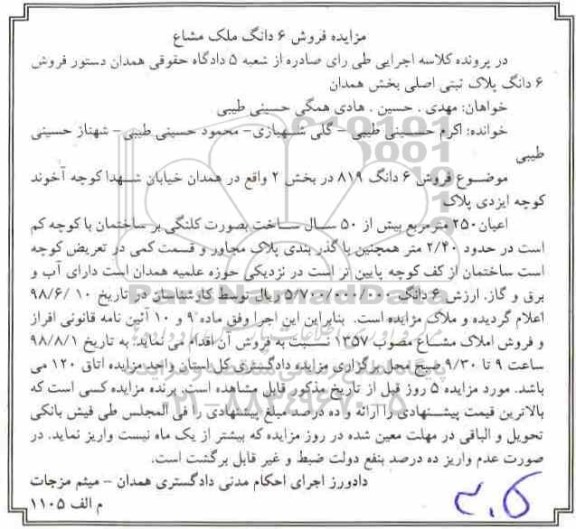 مزایده فروش ۶ دانگ ملک مشاع
در پرونده کلاسه اجرایی طی رای صادره از شعبه ۵ دادگاه حقوقی همدان دستور فروش
۶ دانگ پلاک ثبتی اصلی بخش همدان
خواهان: مهدی . حسین . هادی همگی حسینی طیبی
خوانده: اکرم حسینی طیبی – گلی شهبازی– محمود حسینی طیبی– شهناز حسینی
طیبی
موضوع فروش ۶ دانگ ۸۱۹ در بخش ۲ واقع در همدان خیابان شهدا کوچه آخوند
کوچه ایزدی پلاک
اعیان ۲۵۰ مترمربع بیش از ۵۰ سال ساخت بصورت کلنگی بر ساختمان با کوچه کم
است در حدود ۲/۴۰ متر همچنین با گذر بندی پلاک مجاور و قسمت کمی در تعریض کوچه
است ساختمان از کف کوچه پایین تر است در نزدیکی حوزه علمیه همدان است دارای آب و
برق و گاز. ارزش ۶ دانگ ۵/۷۰۰/۰۰۰/۰۰۰ ریال توسط کارشناسان در تاریخ ۹۸/۶/۱۰
اعلام گردیده و ملاک مزایده است. بنابراین این اجرا وفق ماده ۹ و ۱۰ آئین نامه قانونی افراز
و فروش املاک مشاع مصوب ۱۳۵۷ نسبت به فروش آن اقدام می نماید. به تاریخ ۹۸/۸/۱
ساعت ۹ تا ۹/۳۰ صبح محل برگزاری مزایده دادگستری کل استان واحد مزایده اتاق ۱۲۰ می
باشد. مورد مزایده ۵ روز قبل از تاریخ مذکور قابل مشاهده است. برنده مزایده کسی است که
بالاترین قیمت پیشنهادی را ارائه و ده درصد مبلغ پیشنهادی را فی المجلس طی فیش بانکی
تحویل و الباقی در مهلت معین شده در روز مزایده که بیشتر از یک ماه نیست واریز نماید. در
صورت عدم واریز ده درصد بنفع دولت ضبط و غیر قابل برگشت است.
دادورز اجرای احکام مدنی دادگستری همدان – میثم مزجات
م الف ۱۱۰۵